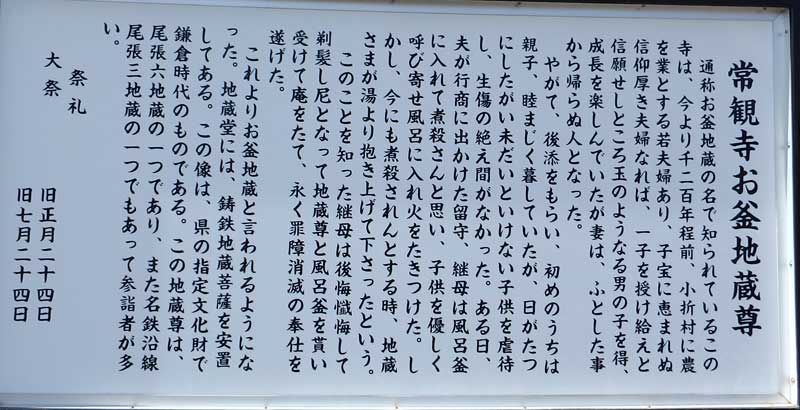 常観寺お釜地蔵尊
通称お釜地蔵の名で知られているこの
寺は、今より千二百年程前、小折村に農
を業とする若夫婦あり、子宝に恵まれぬ
信仰厚き夫婦なれば、一子を授け給えと
信願せしところ玉のようなる男の子を得、
成長を楽しんでいたが妻は、ふとした事
から帰らぬ人となった。
やがて、後添をもらい、初めのうちは
親子、睦まじく暮していたが、日がたつ
にしたがい未だいといけない子供を虐待
し、生傷の絶え間がなかった。ある日、
夫が行商に出かけた留守、継母は風呂釜
に入れて煮殺さんと思い、子供を優しく
呼び寄せ風呂に入れ火をたきつけた。し
かし、今にも煮殺されんとする時、地蔵
さまが湯より抱き上げて下さったという。
このことを知った継母は後悔懺悔して
剃髪し尼となって地蔵尊と風呂釜を貰い
受けて庵をたて、永く罪障消滅の奉仕を
遂げた。
これよりお釜地蔵と言われるようにな
った。地蔵堂には、鋳鉄地蔵菩薩を安置
してある。この像は、県の指定文化財で
鎌倉時代のものである。この地蔵尊は、
尾張六地蔵の一つであり、また名鉄沿線
尾張三地蔵の一つでもあって参詣者が多
い。
祭礼 旧正月二十四日
大祭 旧七月二十四日